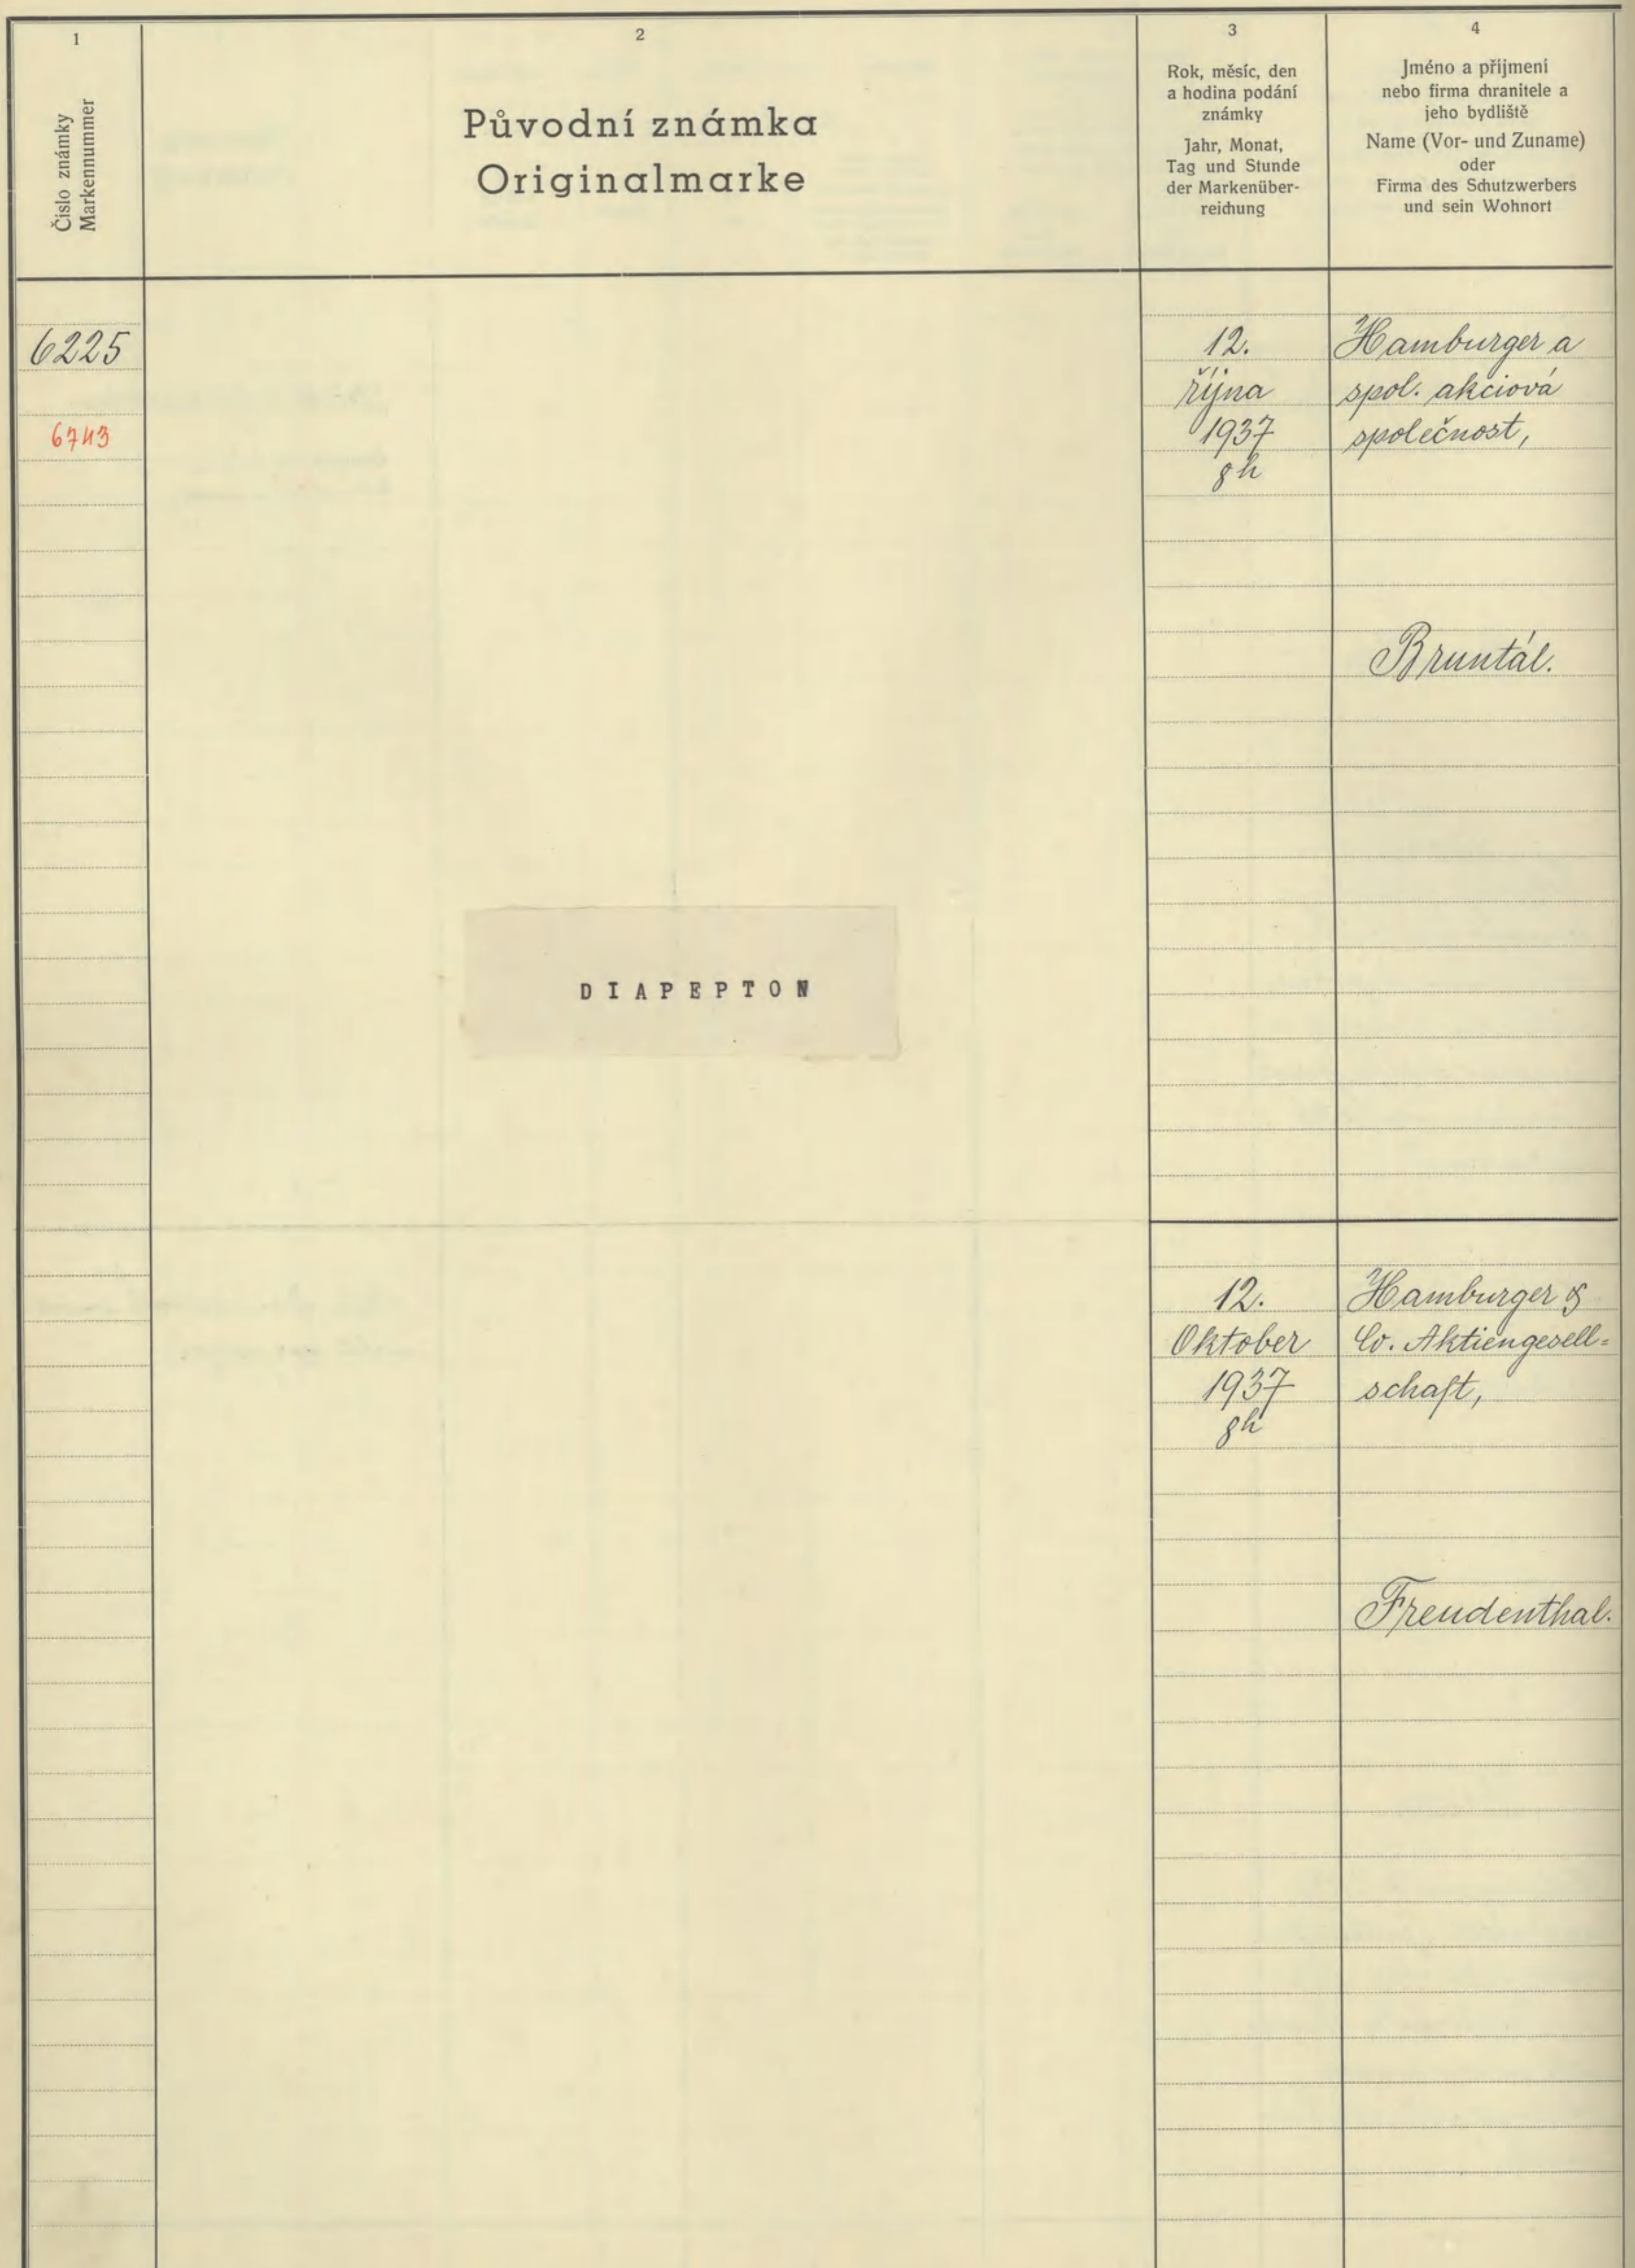 1
Číslo známky
Markennummer
2
Původní známka
Originalmarke
3
Rok, měsíc, den
a hodina podání
známky
Jahr, Monat,
Tag und Stunde
der Markenüber-
reichung
4
Jméno a příjmení
nebo firma chranitele a
jeho bydliště
Name (Vor- und Zuname)
oder
Firma des Schutzwerbers
und sein Wohnort
6225
6743
12.
října
1937
8h
Hamburger a
spol. akciová
společnost,
Bruntál.
DIAPEPTON
12.
Oktober
1937
8h
Hamburger &
Co. Aktiengesell=
schaft,
Freudenthal.